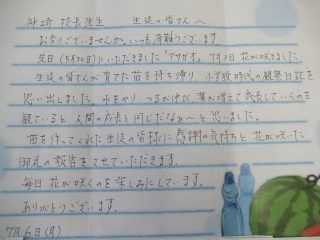 神崎 校長先生  生徒の皆さんへ
お寄りございませんか、いつも有難うございます。
先日(5月30日)にいただきました「アサガオ」7月2日花が咲きました
生徒の皆さんが育てた苗を持ち帰り、小学校時代の観察日記を
思い出しました。水をやり つるが伸び 葉が増えて成長していくのを
観ていると 人間の成長と同じだなぁ〜と思いました。
苗を作ってくれた生徒の皆様に感謝の気持ちと 花が咲いた
御礼の報告をさせていただきます。
毎日 花が咲くのを楽しみにしています。
ありがとうございます。
7月6日(月)